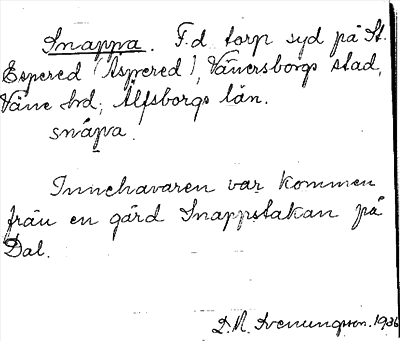 Snappa. F.d. torp syd på St.
Espered (Äspered), Vänersborgs stad,
Väne hd, Älfsborgs län.
snápva.
Innehavaren var kommen
från en gård Snappstakan på
Dal.
D. A. Svenungsson. 1936